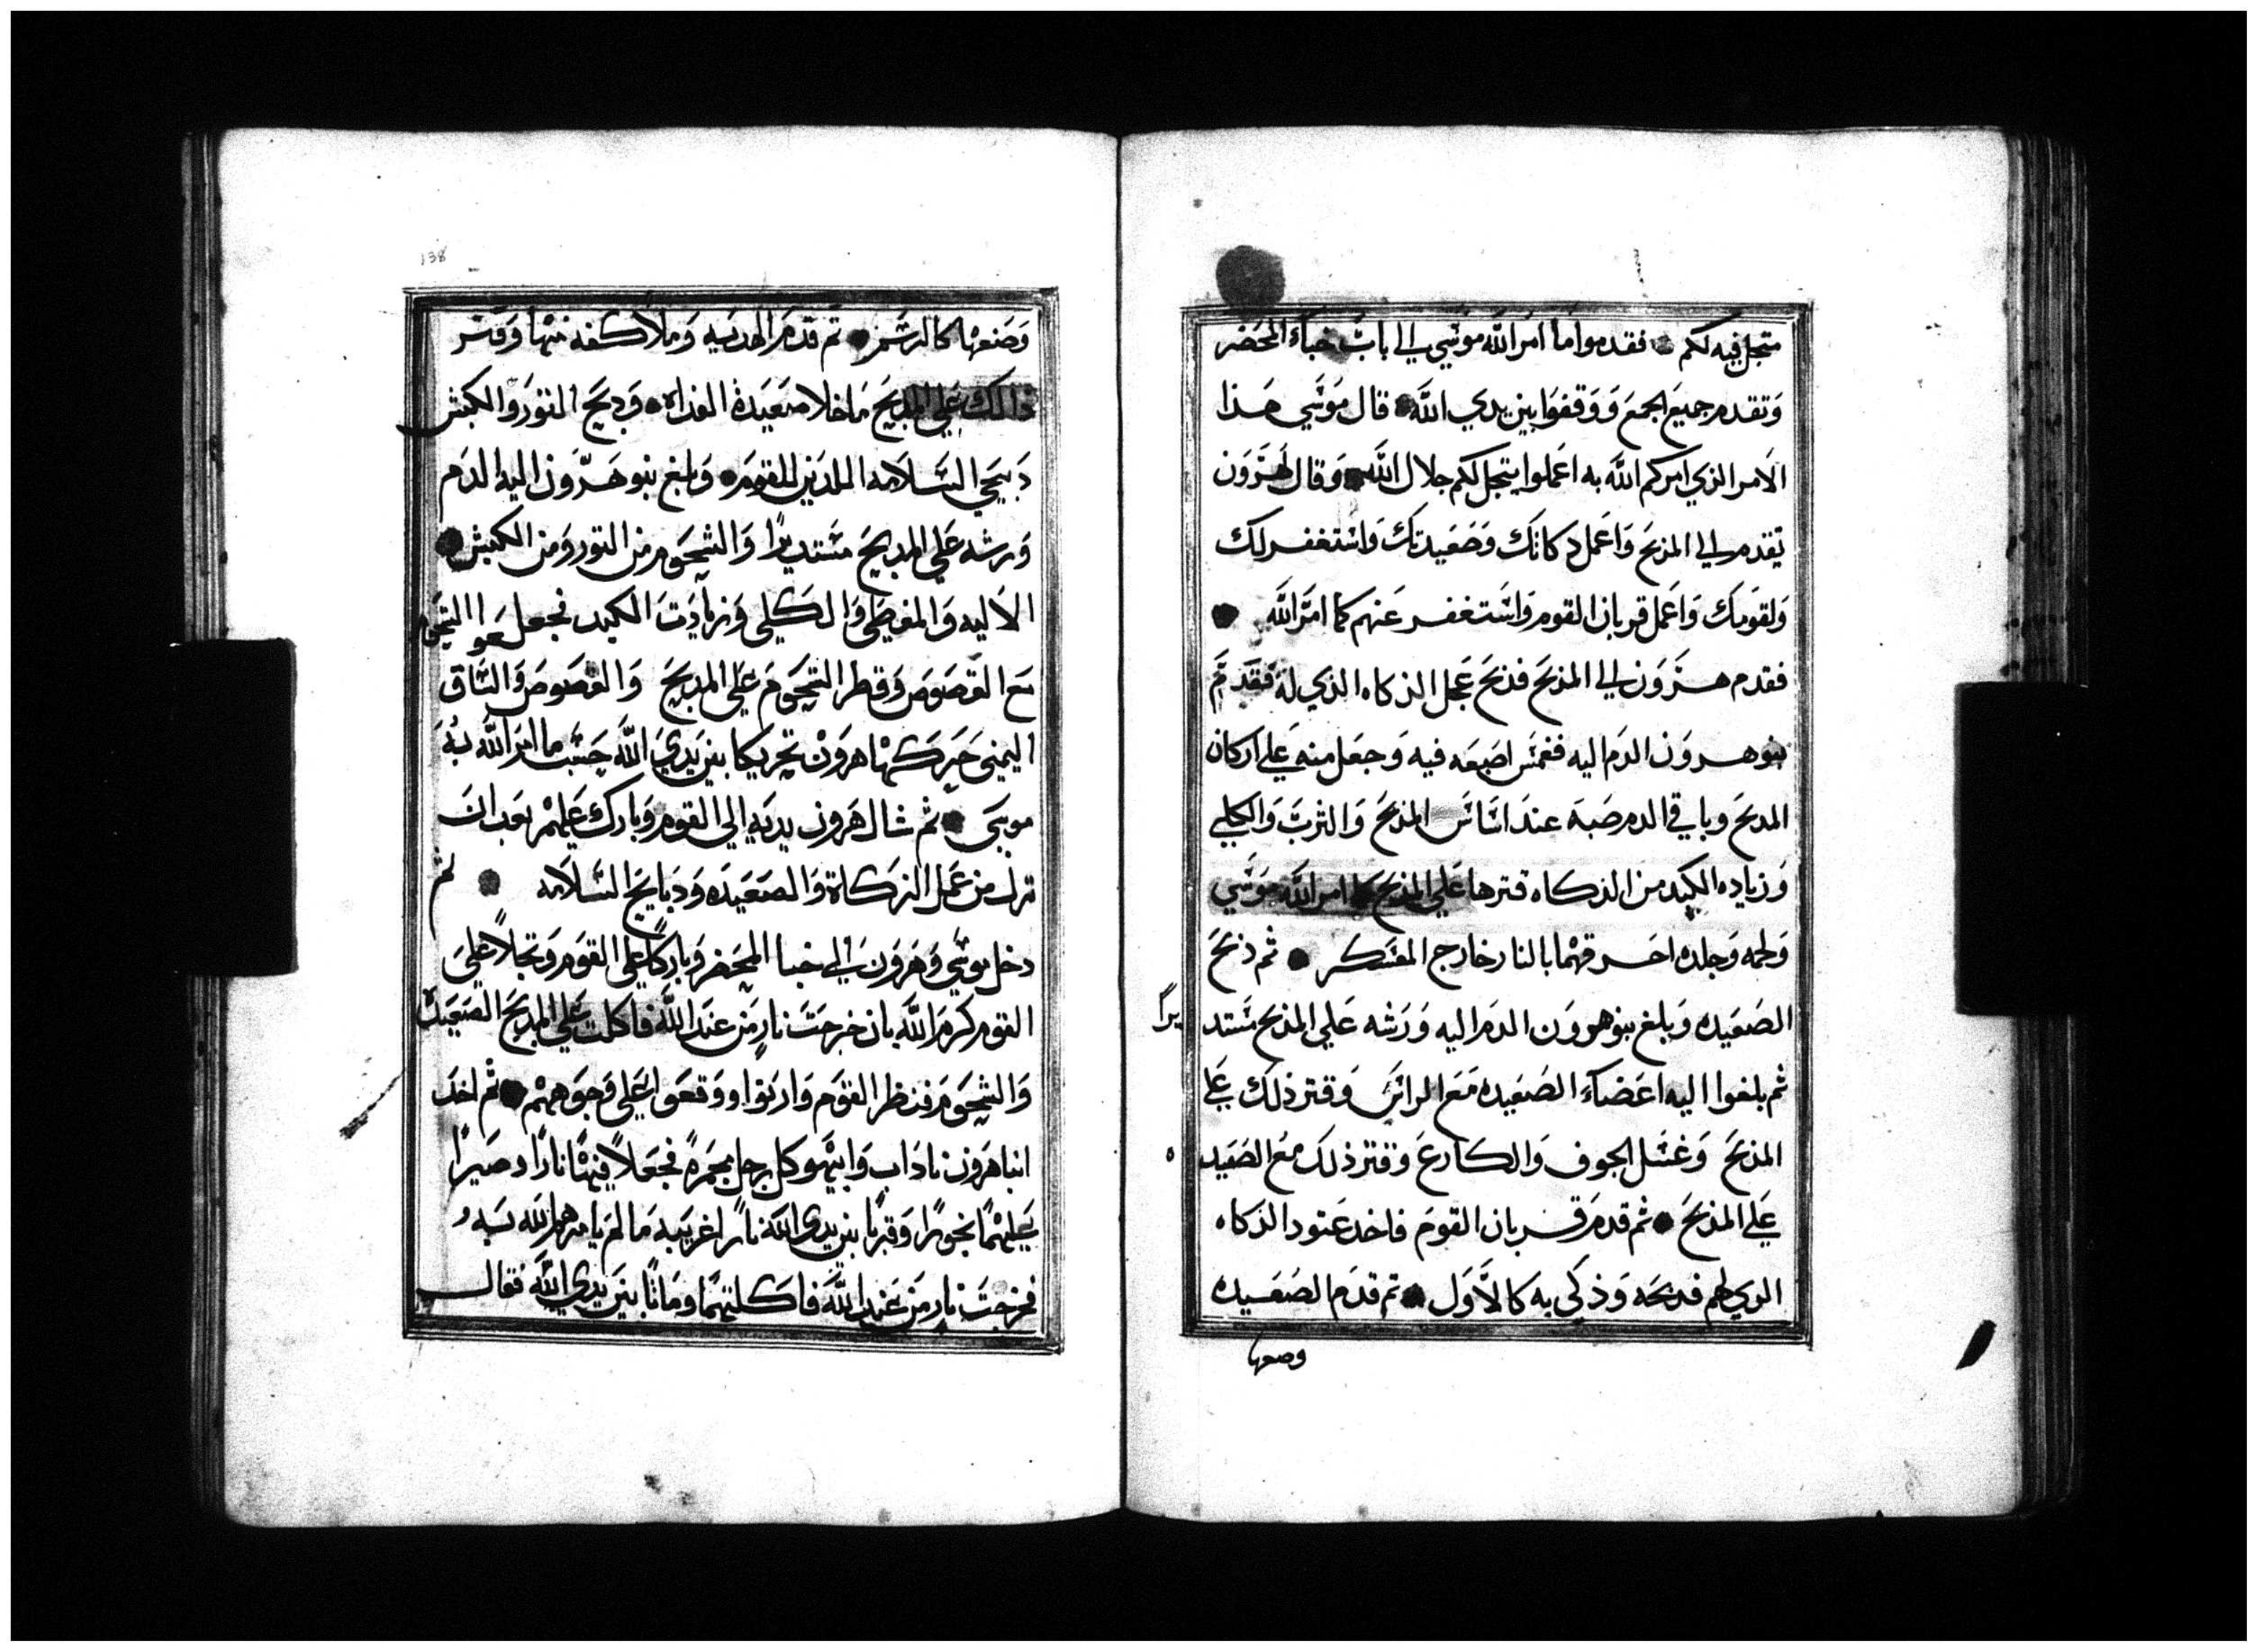 متجل فيه لكم فقدموا ما امر الله موسي الي باب خباء المحضر
وتقدم جميع الجمع ووقفوا بين يدي الله قال موسي هذا
الامر الذي امركم الله به اعملوا يتجل لكم جلال الله وقال لهرون
تقدم الي المذبح واعمل دكاتك وصعيدتك واستغفر لك
ولقومك واعمل قربان القوم واستغفر عنهم كما امر الله
فقدم هرون الي المذبح فذبح عجل الذكاه الذي له فقدم
بنو هرون الدم اليه فغمس اصبعه فيه وجعل منه علي اركان
المدبح وباقي الدم صبه عند اساس المذبح والثرب والكلي
وزياده الكبد من الذكاه قترها علي المذبح كما امر الله موسي
ولحمه وجلده احرقهما بالنار خارج المعسكر ثم ذبح
الصعيده وبلغ بنو هرون الدم اليه ورشه علي المذبح مستد
يرا
ثم بلغوا اليه اعضاء الصعيده مع الراس وقتر ذلك علي
المذبح وغسل الجوف والكارع وقتر ذلك مع الصعيد
ه
علي المذبح ثم قدم قربان القوم فاخد عتود الذكاه
الدي لهم فدبحه وذكي به كالاول تم قدم الصعيده
وصعها
138
وصنعها كالرسم تم قدم الهديه وملا كفه منها وقتر
ذالك علي المدبح ما خلا صعيدة الغداه ودبح التور والكبش
دبيحي السلامه اللدين للقوم وبلغ بنو هرون اليه الدم
ورشه علي المدبح مستديرا والشحوم من التور ومن الكبش
الاليه والمغطي والكلي وزيادت الكبد فجعلوا الشحوم
مع القصوص وقطر الشحوم علي المدبح والقصوص والساق
اليمني حركها هرون تحريكا بين يدي الله حسب ما امر الله به
موسي ثم شال هرون يديه الي القوم وبارك عليهم بعد ان
نزل من عمل الزكاة والصعيده ودبايح السلامه ثم
دخل موسي وهرون الي خبا المحضر وباركا علي القوم وتجلا علي
القوم كرم الله بان خرجت نار من عند الله فاكلت علي المدبح الصعيدة
والشحوم فنظر القوم وارتوا ووقعوا علي وجوههم ثم اخد
ابنا هرون ناداب وابيهو كل رجل مجمرة فجعلا فيها نارا وصيرا
عليهما بخورا وقربا بين يدي الله نارا غريبه ما لم يامرهم الله به
فخرجت نار من عند الله فاكلتهما وماتا بين يدي الله فقال